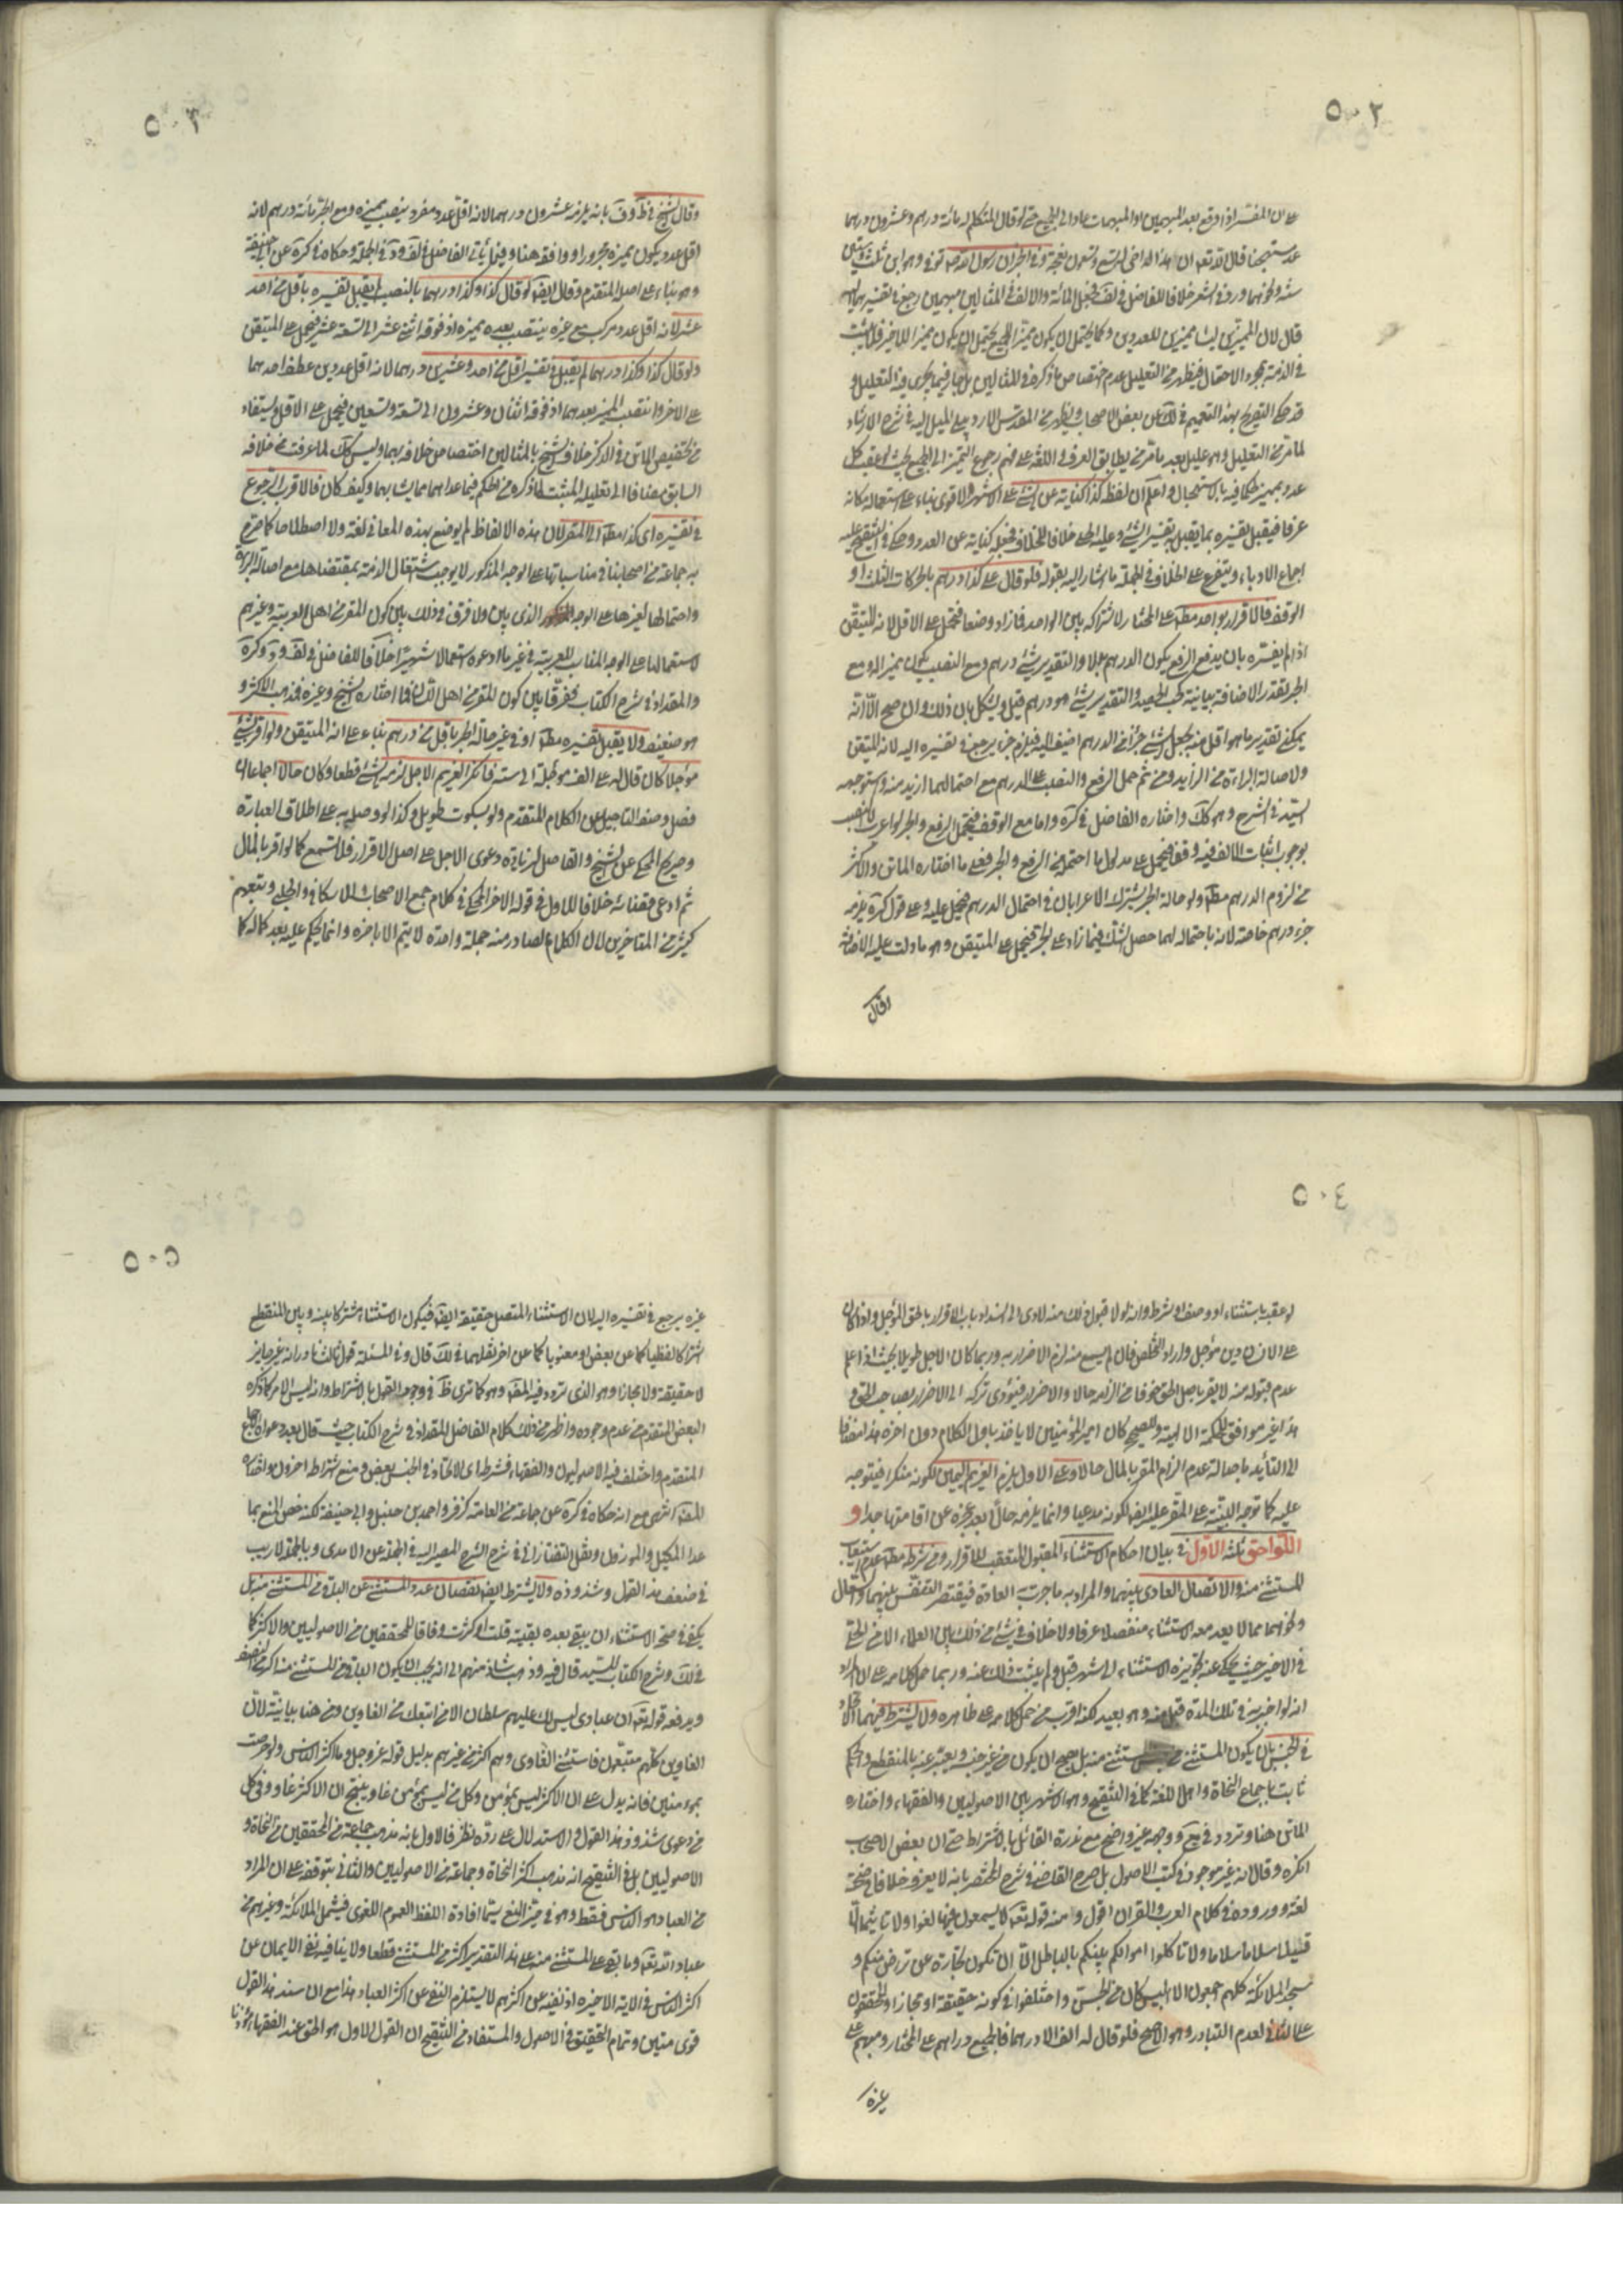 ٥٠٢
على ان المفسر اذا وقع بعد المبهمين او المبهمات عاد الى الجميع حتى لو قال المتكلم له مائة درهم وعشرون درهما
قال الله تعالى ان هذا اخي له تسع وتسعون نعجة وفي الخبر ان رسول الله توفي وهو ابن ثلث وستين
سنة ونحوهما ورد في الشعر خلافا للفاضل في لف فجعل المائة والالف في المثالين مبهمين رجع في تفسيرهما اليه
قال لان المميزين ليسا مميزين للعددين وكما يحتمل ان يكون مميزا للجميع يحتمل ان يكون مميزا للاخير فلا يثبت
في الذمة بمجرد الاحتمال فيظهر من التعليل عدم اختصاص ما ذكره في المثالين بل جار فيما يجري فيه التعليل و
قد حكى التصريح بهذا التعميم في لك عن بعض الاصحاب ويظهر من المقدس الاردبيلي الميل اليه في شرح الارشاد
لما مر من التعليل وهو عليل بعد ما مر من تطابق العرف واللغة على فهم رجوع التميز الى الجميع بحيث لو عقب كل
عدد بمميز مكافيه بالاستهجال واعلم ان لفظ كذا كناية عن الشئ على الاشهر الاقوى بناء على استعماله مكانه
عرفا فيقبل تفسيره بما يقبل به تفسير الشئ وعليه الحلي خلافا للخلاف فجعله كناية عن العدد وحكى في التنقيح عليه
اجماع الادباء ويتفرع على الخلاف في الجملة ما اشار اليه بقوله فلو قال على كذا درهم بالحركات الثلث او
الوقف فالاقرار بواحد مطلقا على المختار لاشتراكه بين الواحد فما زاد وضعا فيحمل على الاقل لانه المتيقن
اذا لم يفسره بان يدفع الرفع يكون الدرهم بدلا والتقدير شئ درهم ومع النصب يكون تميزا له ومع
الجر تقدر الاضافة بيانية كحب الحصيد والتقدير شئ هو درهم قيل ويشكل بان ذلك وان صح الا انه
يمكن تقدير ما هو اقل منه بجعل الشئ جزأ من الدرهم اضيف اليه فيلزم جزء يرجع في تفسيره اليه لانه المتيقن
ولاصالة البراءة من الزايد ومن ثم حمل الرفع والنصب على الدرهم مع احتمالهما ازيد منه واستوجهه
السيد في الشرح وهو كك واختاره الفاضل في كره واما مع الوقف فيحتمل الرفع والجر لو اعرب لا النصب
لوجوب اثبات الالف فيه وقفا فيحمل على مدلول ما احتمله من الرفع والجر فعلى ما اختاره الماتن والاكثر
من لزوم الدرهم مطلقا ولو حالة الجر يشترك الاعرابان في احتمال الدرهم فيحمل عليه وعلى قول كره يلزمه
جزء درهم خاصة لانه باحتماله لهما حصل الشك فيما زاد على الجزء فيحمل على المتيقن وهو ما دلت عليه الاضافة
وقال
٥٠٣
وقال الشيخ في ط وف بانه يلزمه عشرون درهما لانه اقل عدد مفرد ينصب مميزه ومع الجر مائة درهم لانه
اقل عدد يكون مميزه مجرورا ووافقه هنا وفيما يأتي الفاضل في لف ود في الجملة وحكاه في كره عن ابي حنيفة
وهو بناء على اصله المتقدم وقال ايضا لو قال كذا وكذا درهما بالنصب لم يقبل تفسيره باقل من احد
عشر لانه اقل عدد مركب مع غيره ينتصب بعده مميزه اذ فوقه اثنى عشر الى تسعة عشر فيحمل على المتيقن
ولو قال كذا وكذا درهما لم يقبل في تفسيره اقل من احد وعشرين درهما لانه اقل عددين عطف احدهما
على الاخر وانتصب المميز بعدهما اذ فوقه اثنان وعشرون الى تسعة وتسعين فيحمل على الاقل ويستفاد
من تخصيص الماتن في الذكر خلاف الشيخ بالمثالين اختصاص خلافه بهما وليس كك لما عرفت من خلافه
السابق مضافا الى تعليله المثبت لما ذكره من الحكم فيما عداهما مما يشابهما وكيف كان فالاقرب الرجوع
في تفسيره اي كذا مطلقا الى المقر لان هذه الالفاظ لم يوضع بهذه المعاني لغة ولا اصطلاحا كما صرح
به جماعة من اصحابنا ومناسباتها على الوجه المذكور لا يوجب اشتغال الذمة بمقتضاها مع اصالة البراءة
واحتمالها لغيرها على الوجه الذي بين ولا فرق في ذلك بين كون المقر من اهل العربية وغيرهم
لاستعمالها على الوجه المناسب للعربية في غير ما ادعوه استعمالا شهيرا خلافا للفاضل في لف ود وكره
والمقداد في شرح الكتاب ففرقا بين كون المقر من اهل اللسان فما اختاره الشيخ وغيره فمذهب الاكثر و
هو ضعيف ولا يقبل تفسيره مطلقا او في غير حالة الجر باقل من درهم بناء على انه المتيقن ولو اقر بشئ
مؤجلا كان قال له على الف مؤجلة الى سنة فانكر الغريم الاجل لزمه الشئ قطعا وكان حالا اجماعا ان
فصل وصف التاجيل عن الكلام المتقدم ولو بسكوت طويل وكذا لو وصله به على اطلاق العبارة
وصريح المحكي عن الشيخ والفاضل لزيادة دعوى الاجل على اصل الاقرار فلا تسمع كما لو اقر بالمال
ثم ادعى قضائه خلافا للاول في قوله الاخر المحكي في كلام جمع الاصحاب الاسكافي والحلي وتبعهم
كثير من المتاخرين لان الكلام الصادر منه جملة واحدة لا يتم الا باخره وانما يحكم عليه بعد كماله كما
٥٠٤
لو عقبه باستثناء او وصف او شرط وانه لولا قبول ذلك منه لادى الى انسداد باب الاقرار بالحق المؤجل واذا كان
على الانسان دين مؤجل واراد التخلص فان لم يسمع منه لزم الاضرار به وربما كان الاجل طويلا بحيث اذا علم
عدم قبوله منه لا يقر باصل الحق خوفا من الزامه حالا والاضرار فيؤدى تركه الى الاضرار بصاحب الحق و
هذا غير موافق للحكمة الالهية وللصحيح كان امير المؤمنين لا ياخذ باول الكلام دون اخره هذا مضافا
الى التأييد باصالة عدم الزام المقر بالمال حالا وعلى الاول يلزم الغريم اليمين لكونه منكرا فيتوجه
عليه كما توجه البينة على المقر عليه ايضا لكونه مدعيا وانما يلزمه حالا بعد عجزه عن اقامتها جدا و
اللواحق ثلثة الاول في بيان احكام الاستثناء المقبول المتعقب للاقرار ومن شرطه مطلقا عدم استيعاب
المستثنى منه والاتصال العادي بينهما والمراد به ما جرت به العادة فيغتفر التنفس بينهما والسعال
ونحوهما مما لا يعد معه الاستثناء منفصلا عرفا ولا خلاف في شئ من ذلك بين العلماء الا من الحلي
في الاخير حيث يحكى عنه تجويزه الاستثناء الى شهر قيل ولم يثبت ذلك عنه وربما حمل كلامه على ان المراد
انه لو اخبر به في تلك المدة قبل منه وهو بعيد لكنه اقرب من حمل كلامه على ظاهره ولا يشترط فيهما الاتحاد
في الجنس بان يكون المستثنى من المستثنى منه بل يصح ان يكون من غير جنسه ويعبر عنه بالمنقطع والحكم
ثابت باجماع النحاة واهل اللغة كما في التنقيح وهو الاشهر بين الاصوليين والفقهاء واختاره
الماتن هنا وتردد في يع ووجهه غير واضح مع ندرة القائل بالاشتراط حتى ان بعض الاصحاب
انكره وقال انه غير موجود في كتب الاصول بل صرح القاضي في شرح المختصر بانه لا يعرف خلافا في صحته
لغة ووروده في كلام العرب والقران اقول ومنه قوله تعالى لا يسمعون فيها لغوا ولا تاثيما الا
قيلا سلاما سلاما ولا تاكلوا اموالكم بينكم بالباطل الا ان تكون تجارة عن تراض منكم و
سجد الملائكة كلهم اجمعون الا ابليس كان من الجن واختلفوا في كونه حقيقة او مجازا والمحققون
على الثاني لعدم التبادر وهو الاصح فلو قال له الف الا درهما فالجميع دراهم على المختار ومبهم على
غيره
٥٠٥
غيره يرجع في تفسيره اليه لان الاستثناء المتصل حقيقة ايضا فيكون الاستثناء مشتركا بينه وبين المنقطع
اشتراكا لفظيا كما عن بعض او معنويا كما عن اخر نقلهما في لك قال وفي المسئلة قول ثالث نادر انه غير جايز
لا حقيقة ولا مجازا وهو الذي تردد فيه المصنف وهو كما ترى ظ في وجود القول بالاشتراط وانه ليس الامر كما ذكره
البعض المتقدم من عدم وجوده واظهر من ذلك كلام الفاضل المقداد في شرح الكتاب حيث قال بعد دعواه الاجماع
المتقدم واختلف فيه الاصوليون والفقهاء فشرط اي الاتحاد في الجنس بعض ومنع اشتراطه اخرون واختاره
المصنف انتهى مع انه حكاه في كره عن جماعة من العامة كزفر واحمد بن حنبل وابي حنيفة لكنه خص المنع بما
عدا المكيل والموزون ونقل التفتازاني في شرح الشرح المصير اليه في الجملة عن الامدى وبالجملة لا ريب
في ضعف هذا القول وشذوذه ولا يشترط ايضا نقصان عدد المستثنى عن الباقي من المستثنى منه بل
يكفي في صحة الاستثناء ان يبقى بعده بقية قلت او كثرت وفاقا للمحققين من الاصوليين والاكثر كما
في لك وشرح الكتاب للسيد قال فيه وذهب شاذ منهم الى انه يجب ان يكون الباقي من المستثنى منه اكثر من النصف
ويدفعه قوله تعالى ان عبادي ليس لك عليهم سلطان الا من اتبعك من الغاوين ومن هنا بيانية لان
الغاوين كلهم متبعون فاستثنى الغاوي وهم اكثر من غيرهم بدليل قوله عز وجل وما اكثر الناس ولو حرصت
بمؤمنين فانه يدل على ان الاكثر ليس بمؤمن وكل من ليس بمؤمن غاو ينتج ان الاكثر غاو وفي كل
من دعوى شذوذ هذا القول والاستدلال على رده نظر فالاول بانه مذهب جماعة من المحققين من النحاة و
الاصوليين بل في التنقيح انه مذهب اكثر النحاة وجماعة من الاصوليين والثاني بتوقفه على ان المراد
من العباد هو الناس فقط وهو في حيز المنع سيما افادة اللفظ العموم اللغوي فيشمل الملائكة وغيرهم من
عباد الله تعالى وما بقى على المستثنى منه على هذا التقدير اكثر من المستثنى قطعا ولا ينافيه نفي الايمان عن
اكثر الناس في الاية الاخيرة اذ نفيه عن اكثرهم لا يستلزم النفي عن اكثر العباد هذا مع ان سند هذا القول
قوى متين وتمام التحقيق في الاصول والمستفاد من التنقيح ان القول الاول هو الحق عند الفقهاء